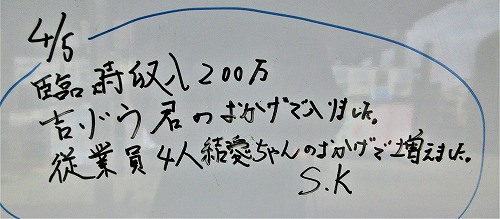 4/5
臨時収入200万
吉ドウ君のおかげで入りました。
従業員4人結愛ちゃんのおかげで増えました。
S.K